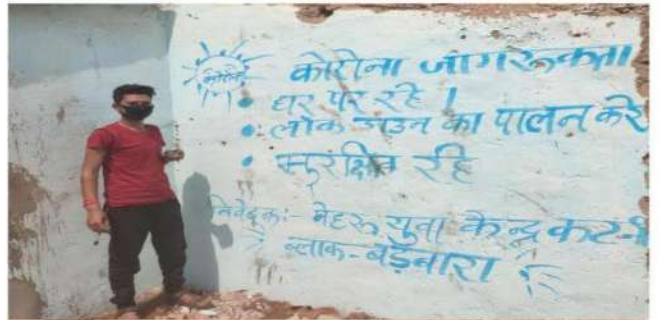 कोरोना
कोरोना जागरूकता
• घर पर रहे ।
• लोक डाउन का पालन करे
• सुरक्षित रहे
निवेदक:- नेहरू युवा केन्द्र कटनी
ब्लाक - बड़वारा